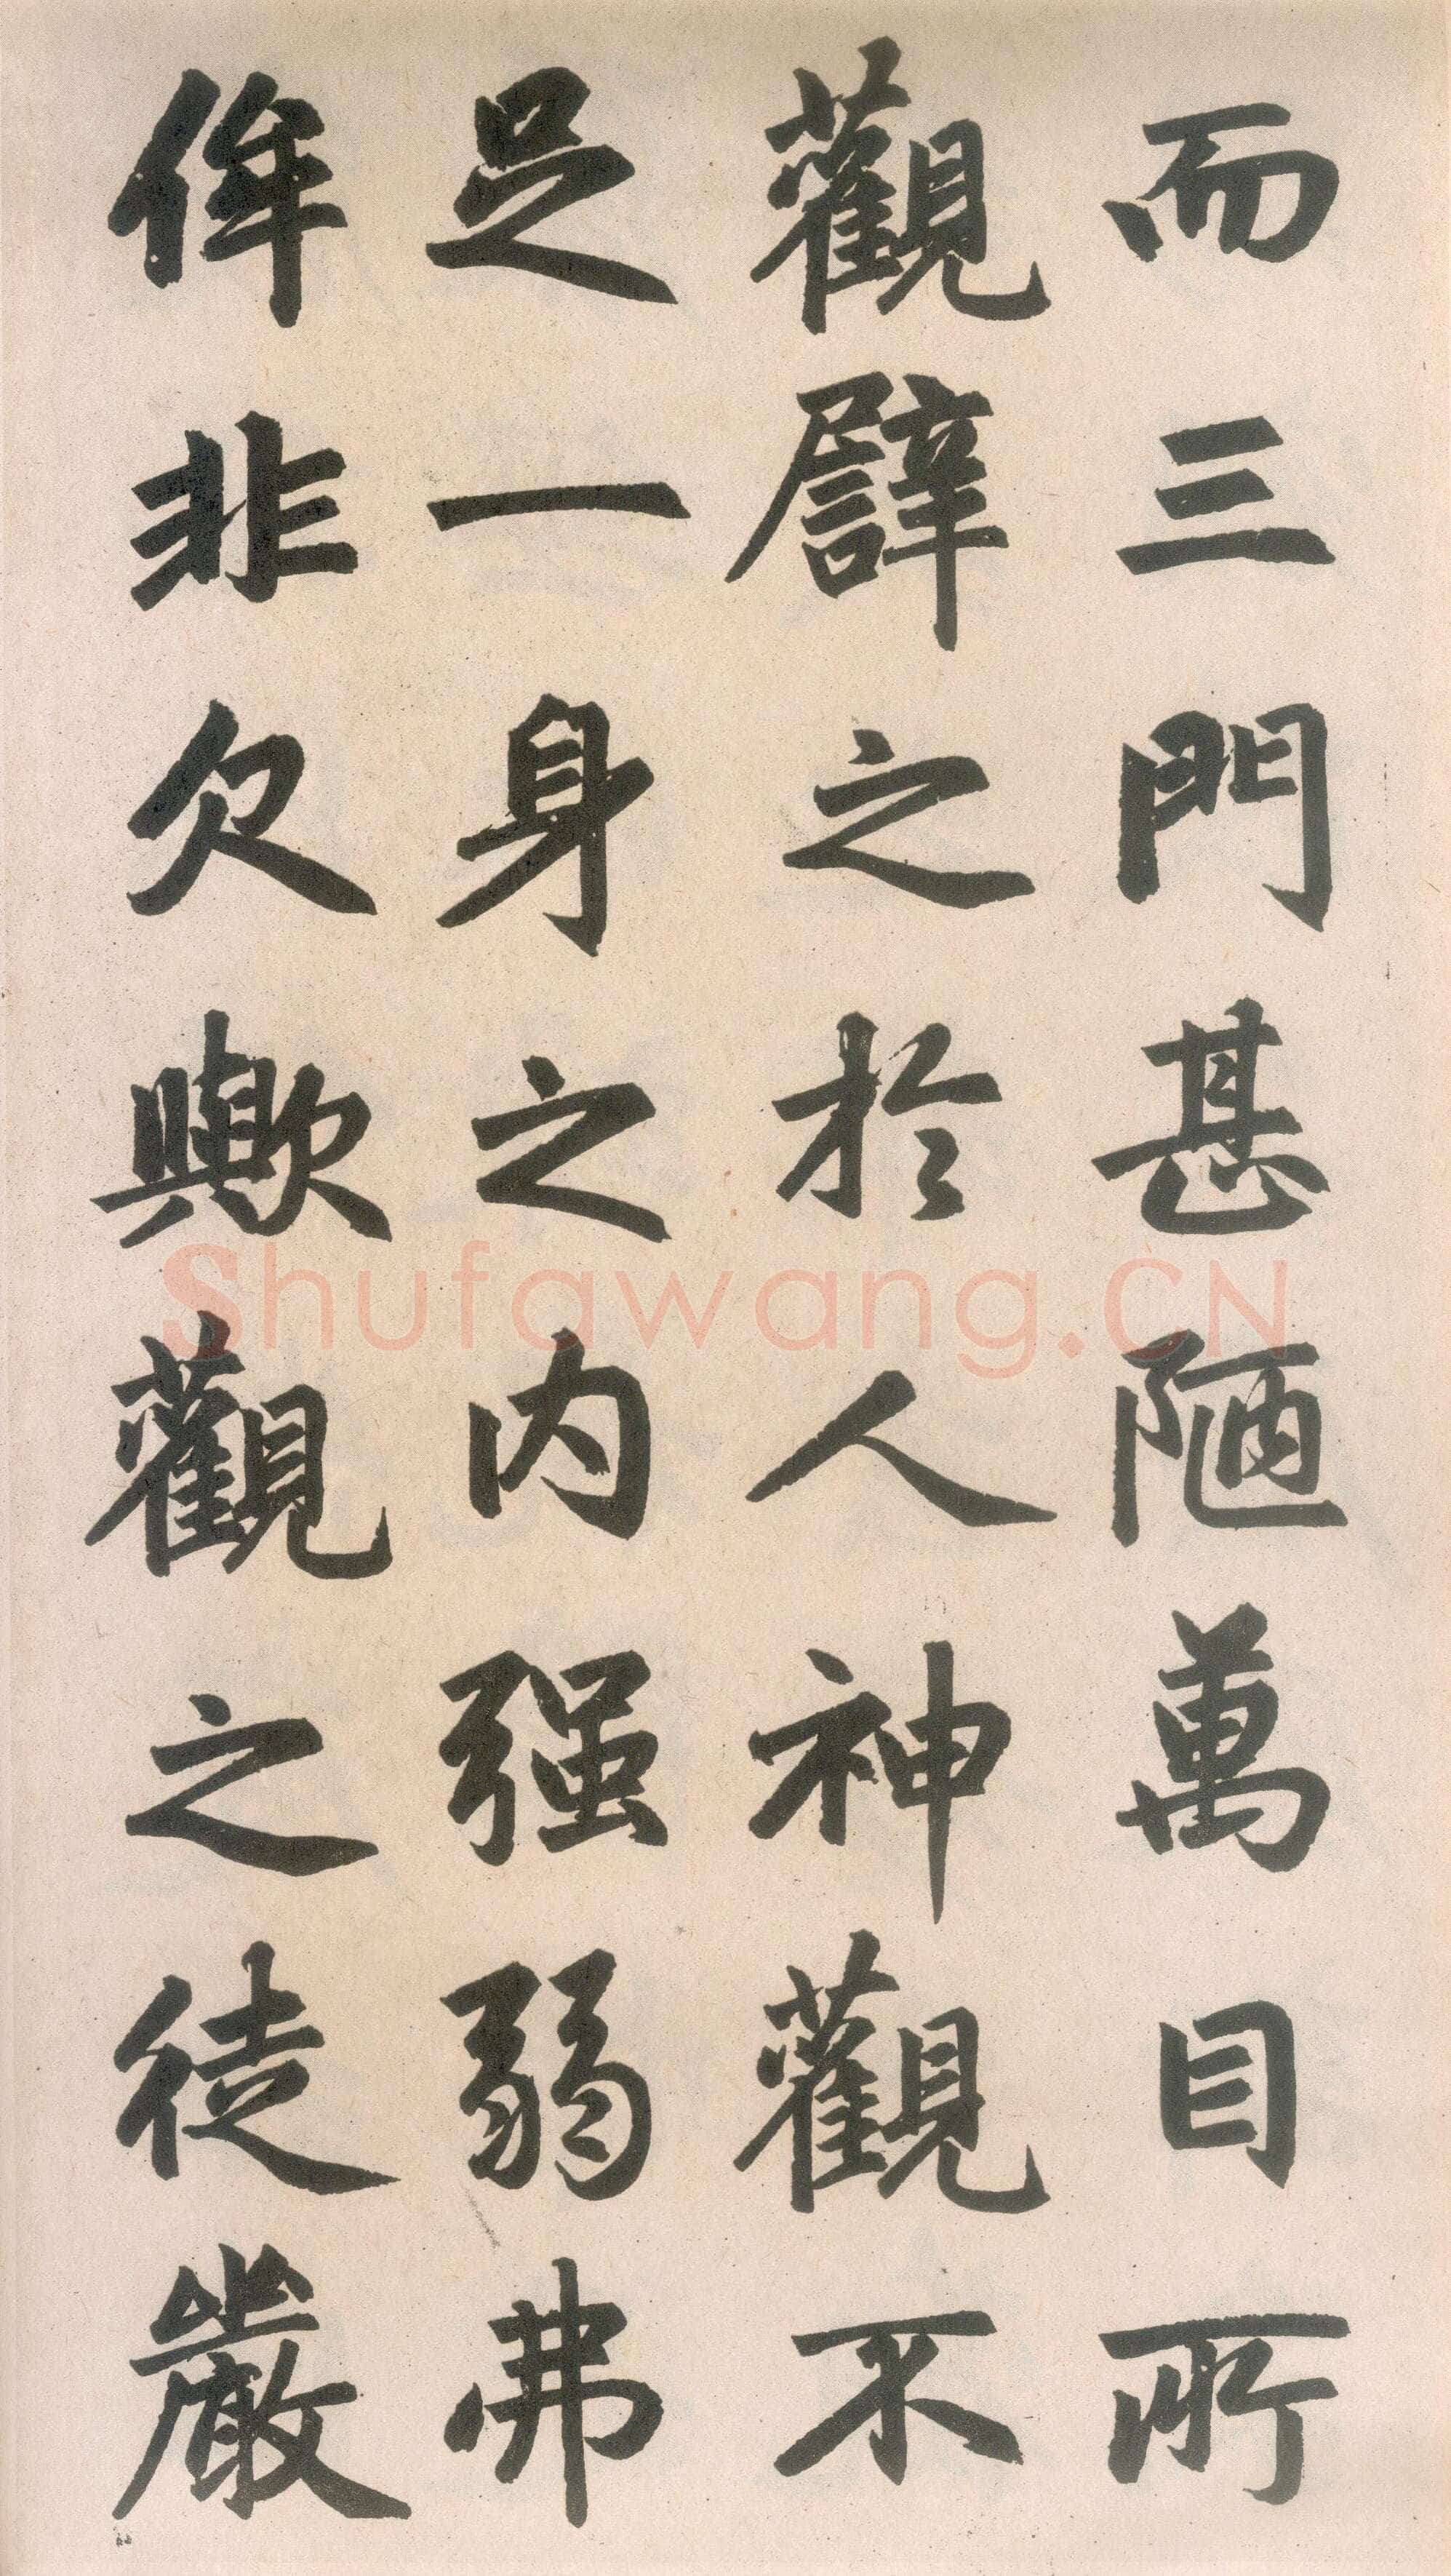 而三門甚陋萬目所
觀譬之於人神觀不
足一身之内强弱弗
侔非欠歟觀之徒嚴
Shufawang.CN